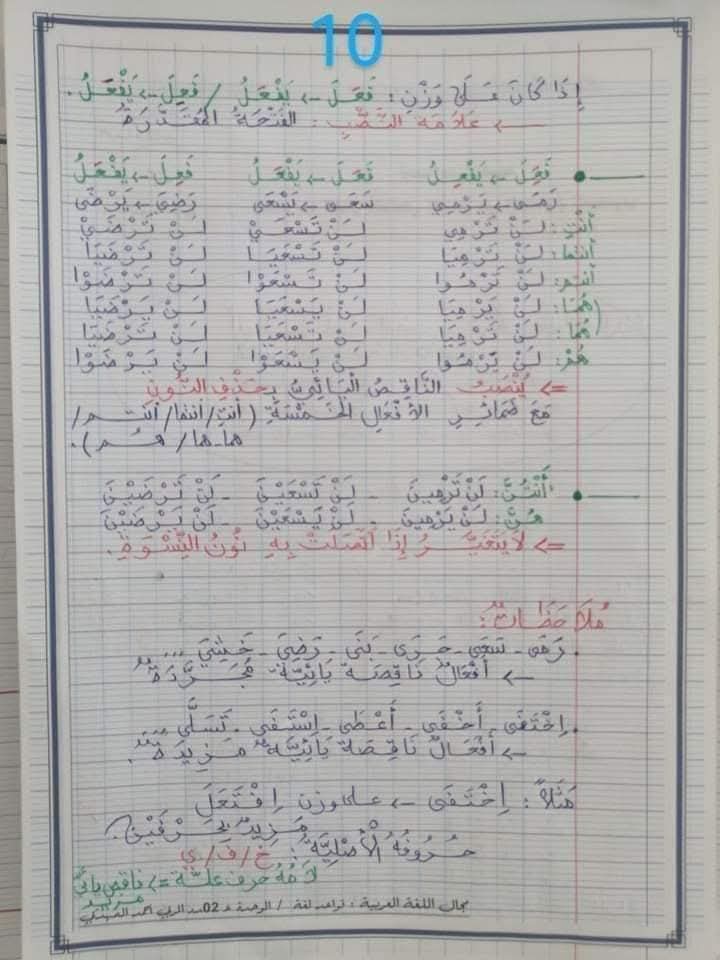 10
إِذَا كَانَ عَلَى وَزْنِ: فَعَلَ -> يَفْعَلُ / فَعِلَ -> يَفْعَلُ.
-> عَلَامَةُ النَّصْبِ: الفَتْحَةُ المُقَدَّرَةُ
فَعَلَ -> يَفْعِلُ فَعَلَ -> يَفْعَلُ فَعِلَ -> يَفْعَلُ
رَمَى -> يَرْمِي سَعَى -> يَسْعَى رَضِيَ -> يَرْضَى
أَنْتِ: لَنْ تَرْمِي لَنْ تَسْعَيْ لَنْ تَرْضَيْ
أنتما: لَنْ تَرْمِيَا لَنْ تَسْعَيَا لَنْ تَرْضَيَا
أنتم: لَنْ تَرْمُوا لَنْ تَسْعَوْا لَنْ تَرْضَوْا
هُمَا: لَنْ يَرْمِيَا لَنْ يَسْعَيَا لَنْ يَرْضَيَا
هُمَا: لَنْ تَرْمِيَا لَنْ تَسْعَيَا لَنْ تَرْضَيَا
هُمْ: لَنْ يَرْمُوا لَنْ يَسْعَوْا لَنْ يَرْضَوْا
=> يُنْصَبُ النَّاقِصُ اليَائِيُّ بِحَذْفِ النُّونِ
مَعَ ضَمَائِرِ الأَفْعَالِ الخَمْسَةِ (أنتِ/أنتما/أنتم/
هما-هما/هُم).
أَنْتُنَّ: لَنْ تَرْمِينَ - لَنْ تَسْعَيْنَ - لَنْ تَرْضَيْنَ
هُنَّ: لَنْ يَرْمِينَ - لَنْ يَسْعَيْنَ - لَنْ يَرْضَيْنَ
=> لَا يَتَغَيَّرُ إِذَا اتَّصَلَتْ بِهِ نُونُ النِّسْوَةِ.
مُلَاحَظَاتٌ:
. رَمَى - سَعَى - جَرَى - بَنَى - رَضِيَ - خَشِيَ ...
-> أَفْعَالٌ نَاقِصَةٌ يَائِيَّةٌ مُجَرَّدَةٌ
. اِخْتَفَى - أَخْفَى - أَعْطَى - اِسْتَشْفَى - تَسَلَّى ...
-> أَفْعَالٌ نَاقِصَةٌ يَائِيَّةٌ مَزِيدَةٌ.
مَثَلًا: اِخْتَفَى -> على وزن اِفْتَعَلَ
مَزِيدٌ بِحَرْفَيْنِ.
حُرُوفُهُ الْأَصْلِيَّةُ: خ/ف/ي
لَامُهُ حرف علّة => ناقص يائيّ
مزيد
مجال اللغة العربية: قواعد لغة / الوحدة 02